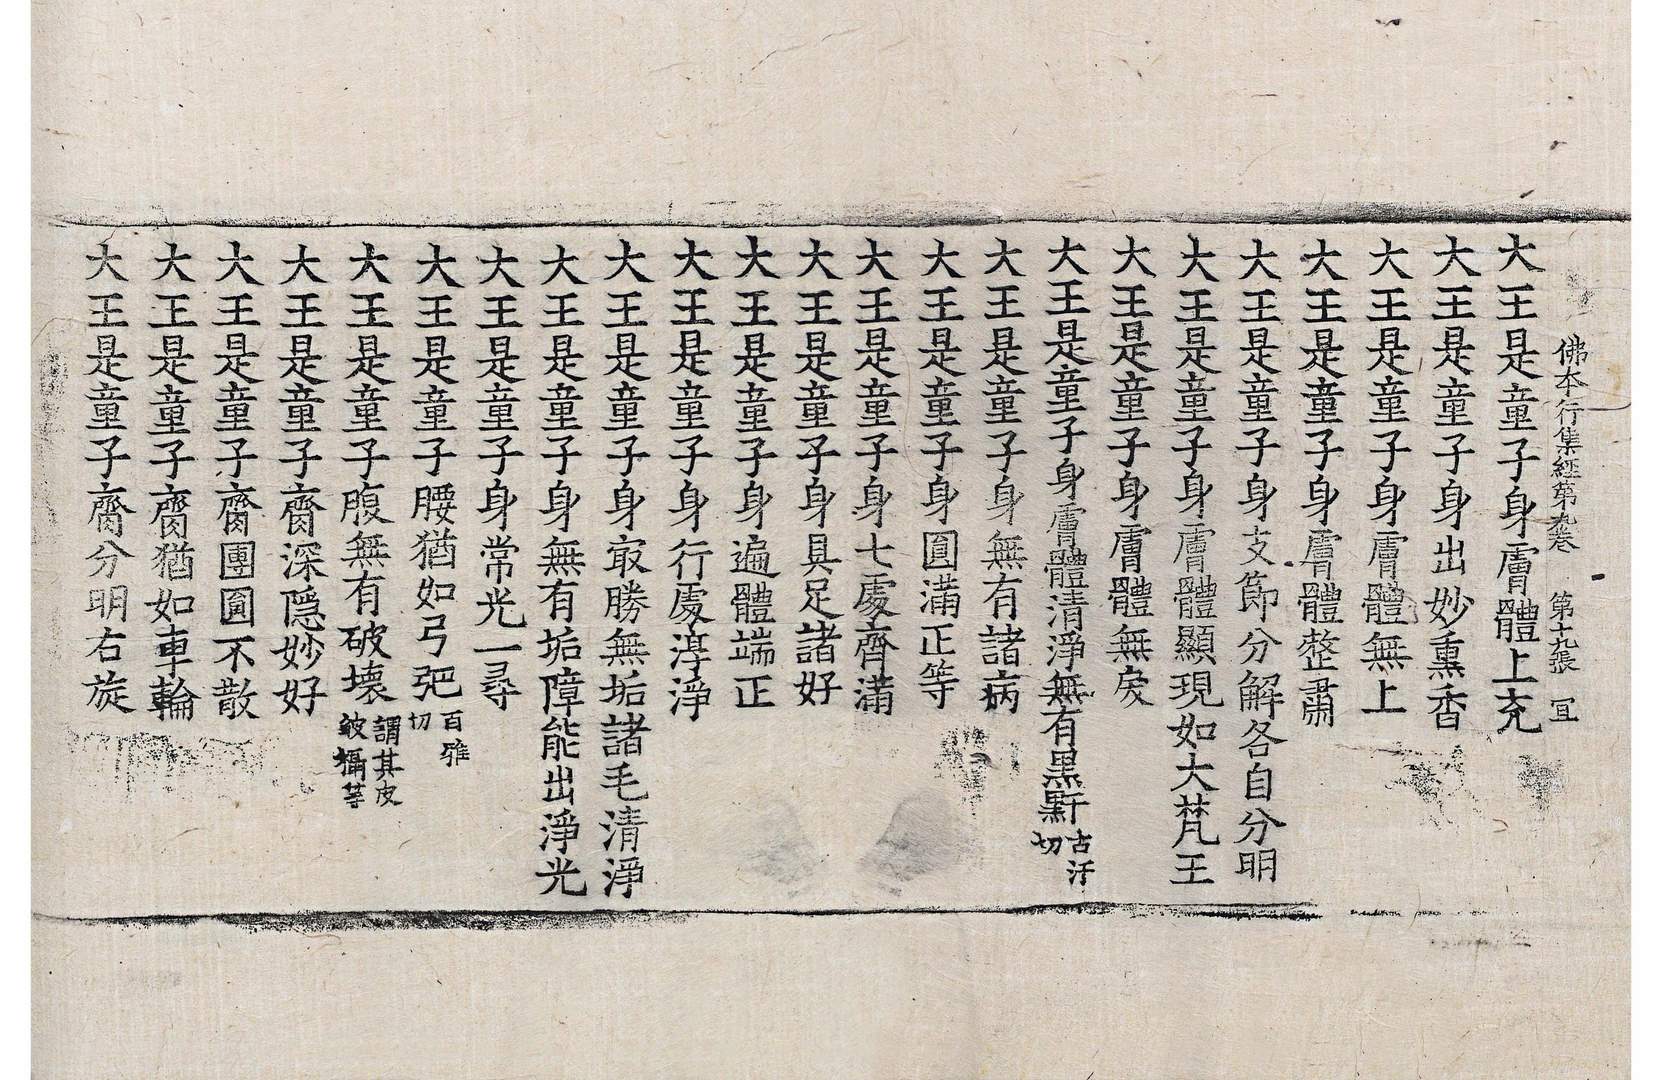 佛本行集經第九卷 第十九張 冝
大王是童子身膚體上充
大王是童子身出妙熏香
大王是童子身膚體無上
大王是童子身膚體整肅
大王是童子身支節分解各自分明
大王是童子身膚體顯現如大梵王
大王是童子身膚體無戾
大王是童子身膚體清淨無有黑䵟古汗切
大王是童子身無有諸病
大王是童子身圓滿正等
大王是童子身七處齊滿
大王是童子身具足諸好
大王是童子身遍體端正
大王是童子身行處淳淨
大王是童子身㝡勝無垢諸毛清淨
大王是童子身無有垢障能出淨光
大王是童子身常光一尋
大王是童子腰猶如弓弝百雅切
大王是童子腹無有破壞謂其皮皴攝等
大王是童子臍深隱妙好
大王是童子臍團圓不散
大王是童子臍猶如車輪
大王是童子臍分明右旋